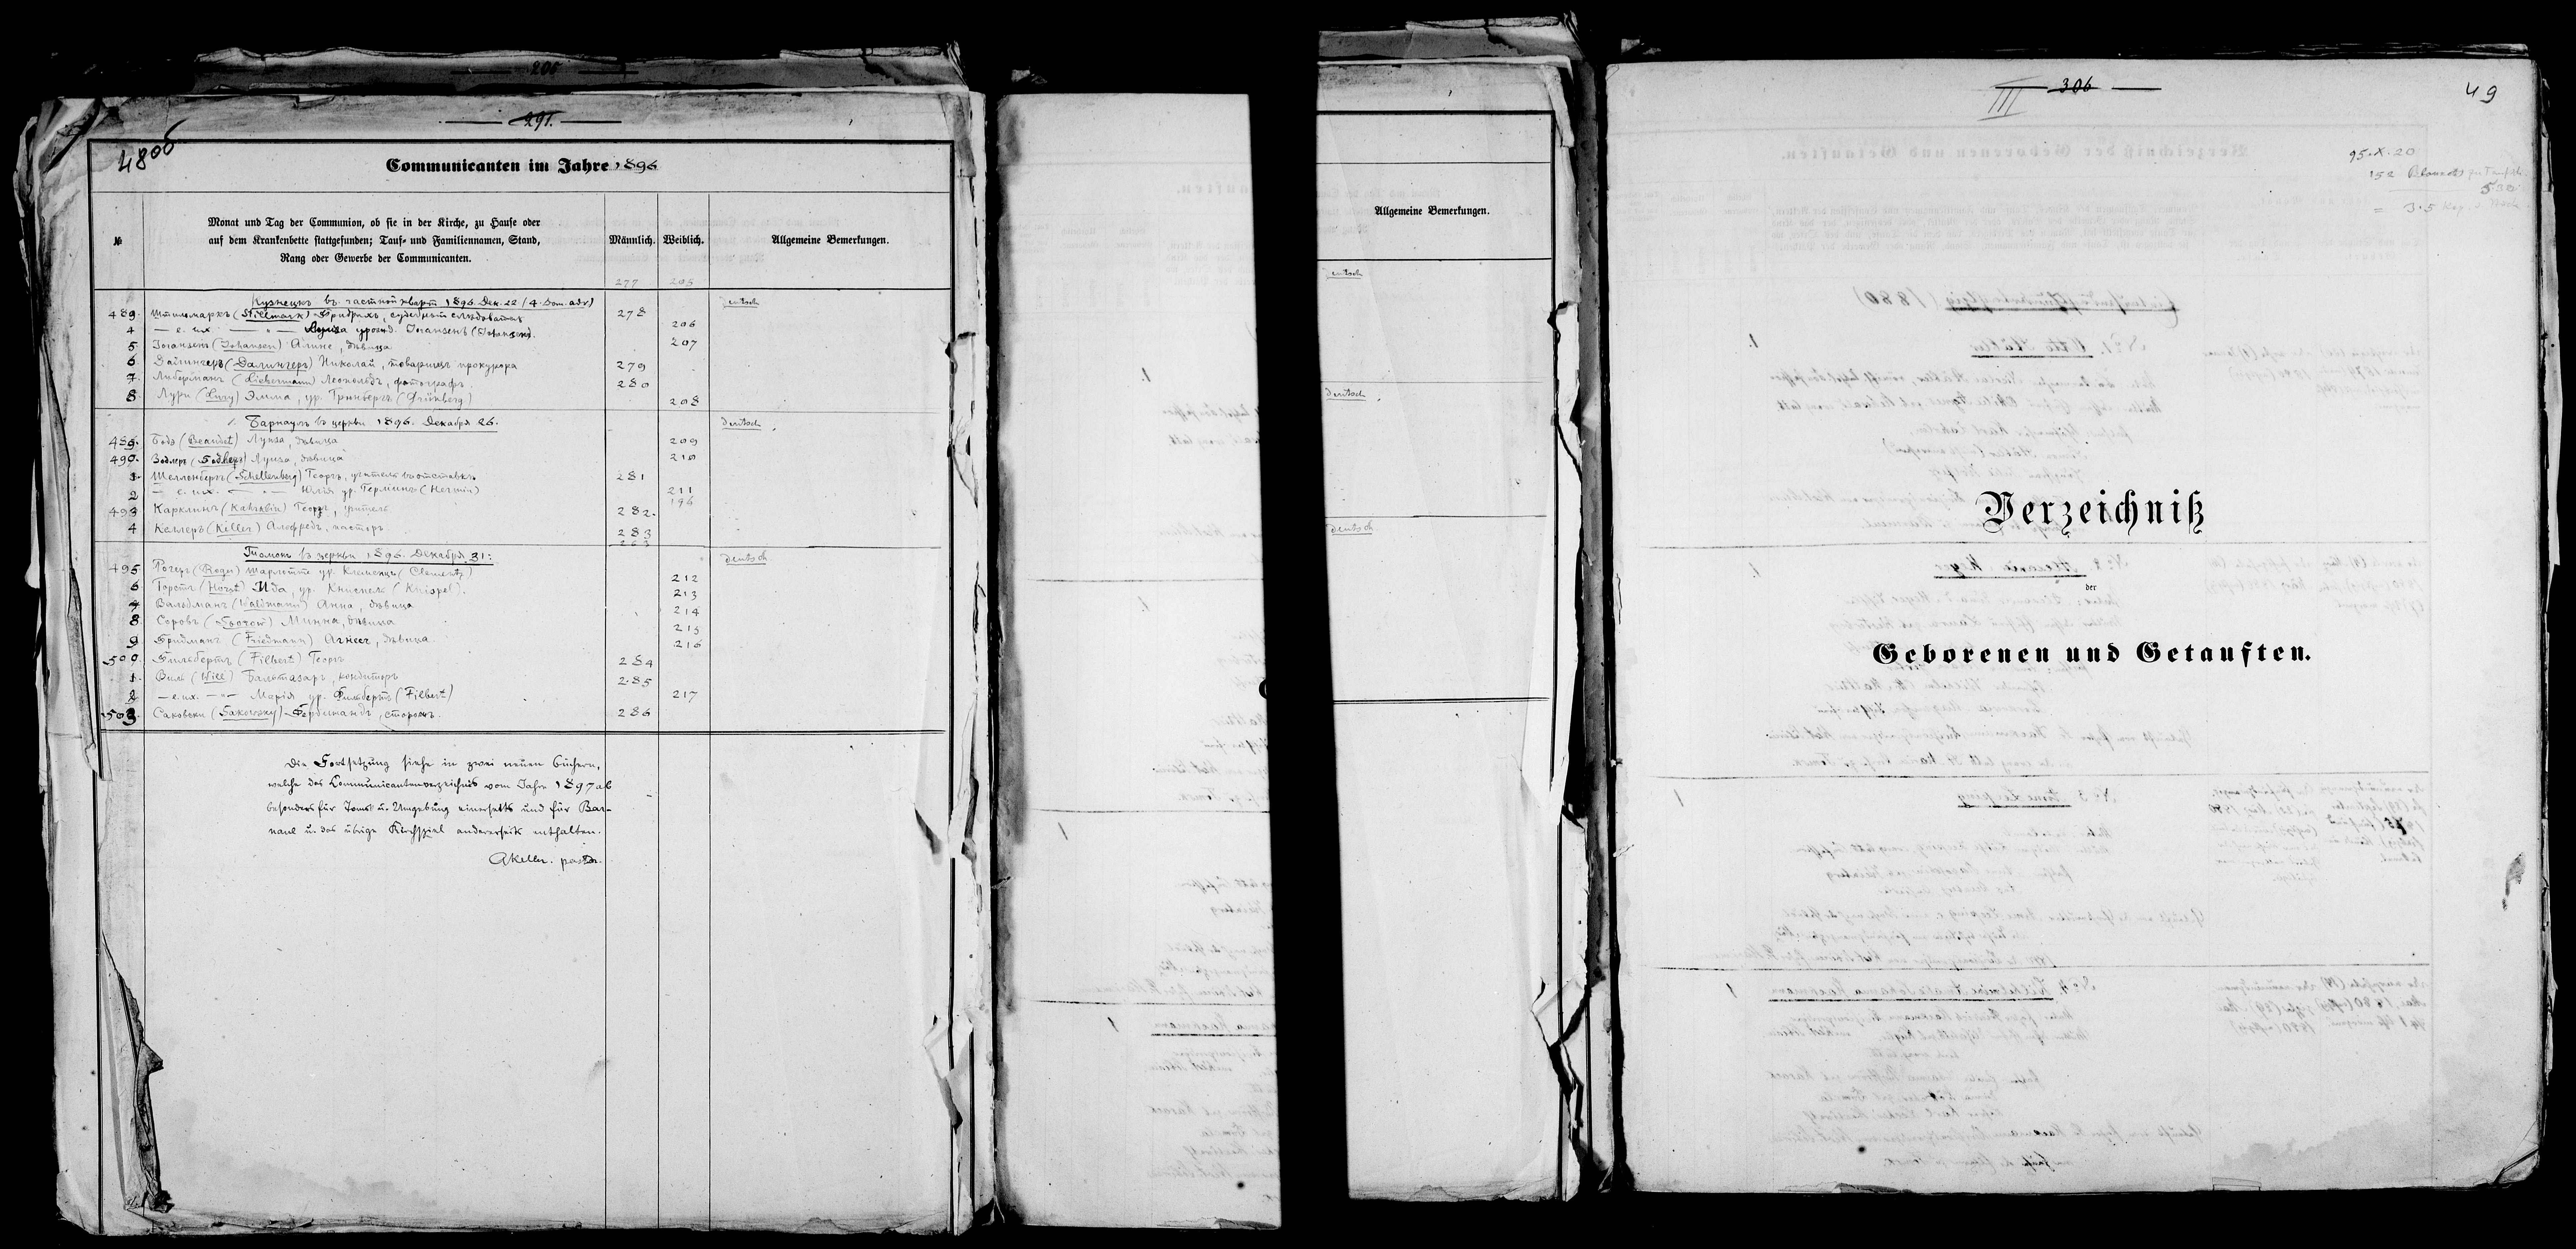 205
291.
480б
Communicanten im Jahre 1896
№
Monat und Tag der Communion, ob sie in der Kirche, zu Hause oder
auf dem Krankenbette stattgefunden; Tauf- und Familiennamen, Stand,
Rang oder Gewerbe der Communicanten.
Männlich.
Weiblich.
Allgemeine Bemerkungen.
277 205
Кузнецкъ въ частной кварт 1896. Dec. 22 / 4. Dom. adv) deutsch
489. Штильмаркъ (Stillmark) Фридрихъ, судебный слѣдователь 278
4 — е. их. — " — Луиза урожд. Іогансенъ (Johansen). 206
5 Іогансенъ (Johansen) Алине, дѣвица 207
6 Далингеръ (Далингеръ) Николай, товарищъ прокурора 279
7. Либерманъ (Liebermann) Леопольдъ, фотографъ. 280
8 Лури (Lury) Эмма, ур. Грюнбергъ (Grünberg) 208
Барнаулъ въ церкви 1896. Декабря 26. deutsch
489. (Beandet) Луиза, дѣвица 209
490. Луиза, дѣвица 210
1. Шелленбергъ (Schellenberg) Георгъ, учитель въ отставкѣ 281
2 — е. их. — " — Юлія ур. Герминъ (Hermin) 211
196
493 Карклинъ (Kahrklin) Георгъ, учитель 282.
4 Келлеръ (Keller) Альфредъ, пасторъ. 283
Томскъ въ церкви 1896. Декабря 31: deutsch
495 Рогеръ (Roger) Шарлотте ур. Клеменцъ (Clementz) 212
6 Горстъ (Horst) Ида, ур. Книспель (Knispel). 213
7 Вальдманъ (Waldmann) Анна, дѣвица 214
8 Соровъ Минна, дѣвица 215
9 Фридманъ (Friedmann) Агнесъ, дѣвица 216
500. Фильбертъ (Filbert) Георгъ 284
1. Виль (Will) Бальтазаръ, кондиторъ 285
2 — е. их. — " — Марія ур. Фильбертъ (Filbert) 217
503. Саковски (Sakowsky) Фердинандъ, сторожъ. 286
Die Fortsetzung siehe in zwei neuen Büchern,
welche das Communicantenverzeichnis vom Jahre 1897 ab
besonders für Tomsk u. Umgebung einerseits und für Bar-
naul u. das übrige Kirchspiel andererseits enthalten.
AKeller. pastor.
Allgemeine Bemerkungen.
deutsch
deutsch
deutsch
III 306
49
95.X.20
152
530
= 3.5 Kop.
Verzeichniß
der
Geborenen und Getauften.